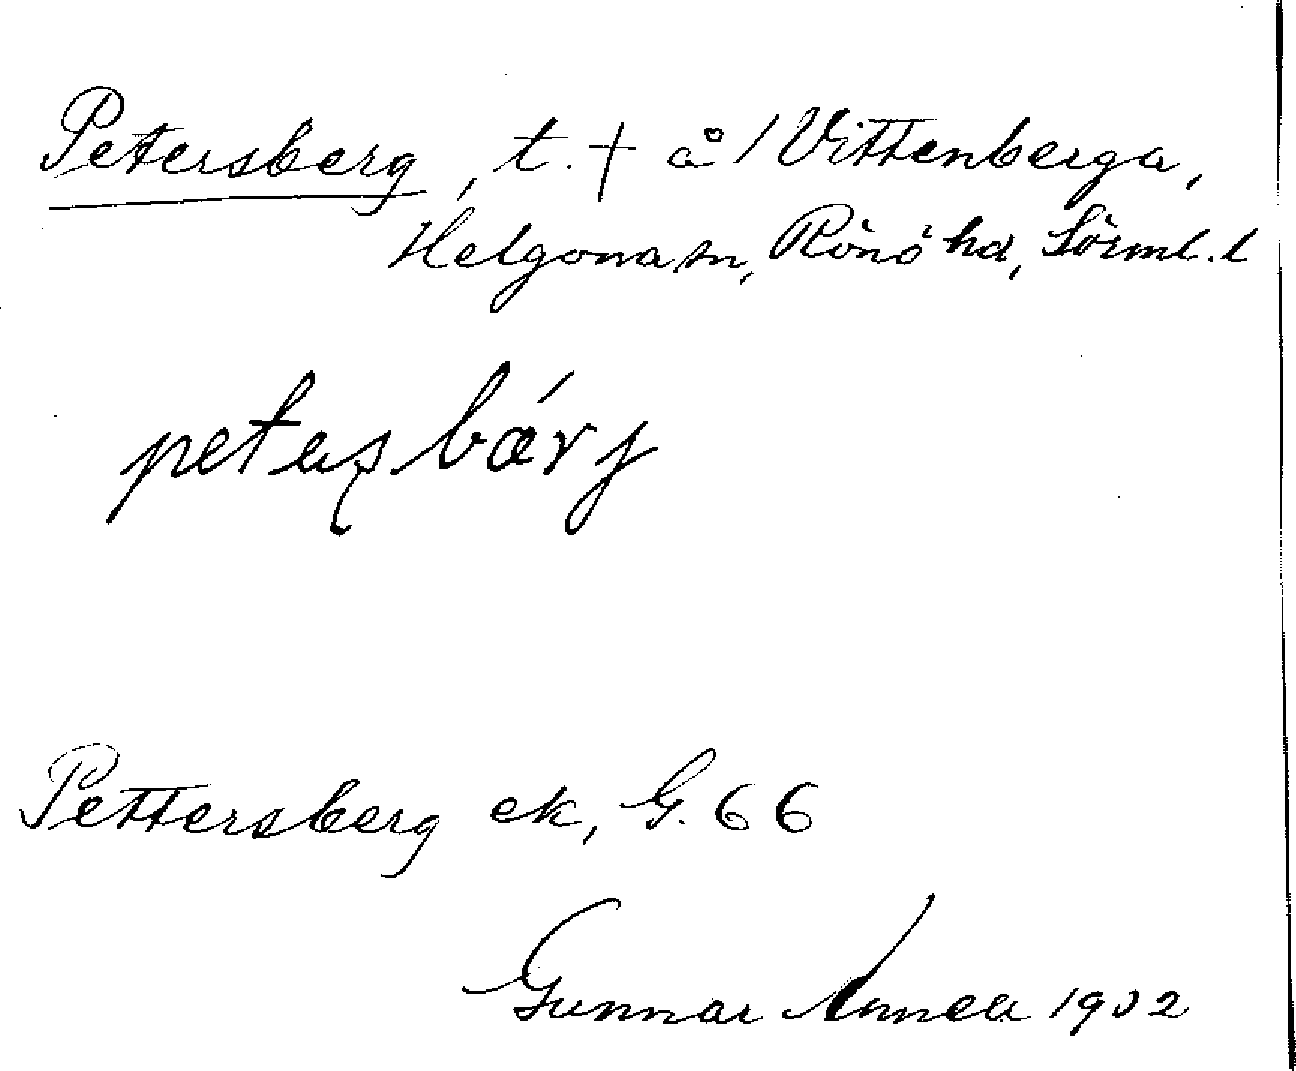 Petersberg, t. † å / Vittenberga,
Helgona sn, Rönö hd, Sörml. l
petaʂbǽrj
Pettersberg ek, G. 66
Gunnar Linnell 1932